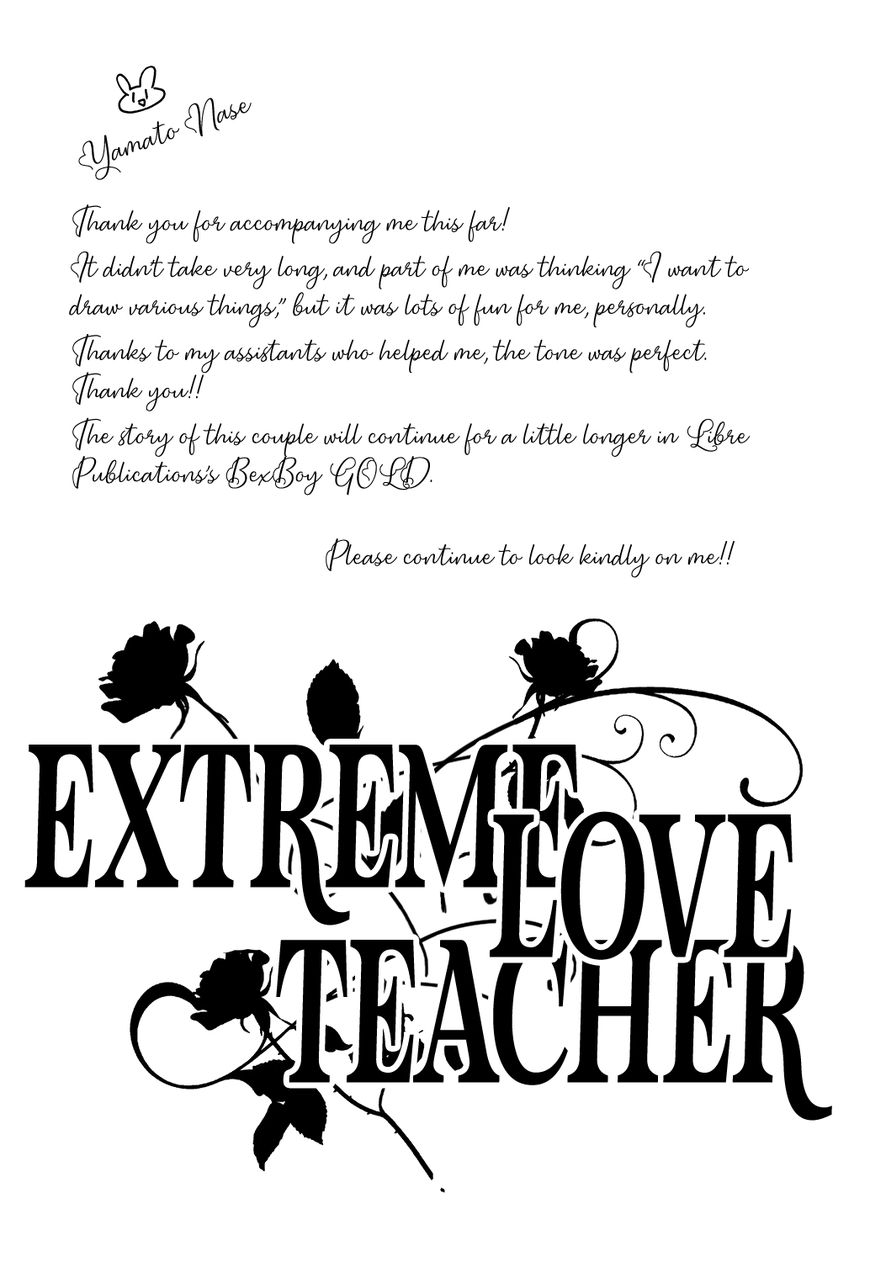 Yamato Nase
Thank you for accompanying me this far!
It didn't take very long, and part of me was thinking "I want to
draw various things," but it was lots of fun for me, personally.
Thanks to my assistants who helped me, the tone was perfect.
Thank you!!
The story of this couple will continue for a little longer in Libre
Publications's BexBoy GOLD.
Please continue to look kindly on me!!
EXTREME
LOVE
TEACHER